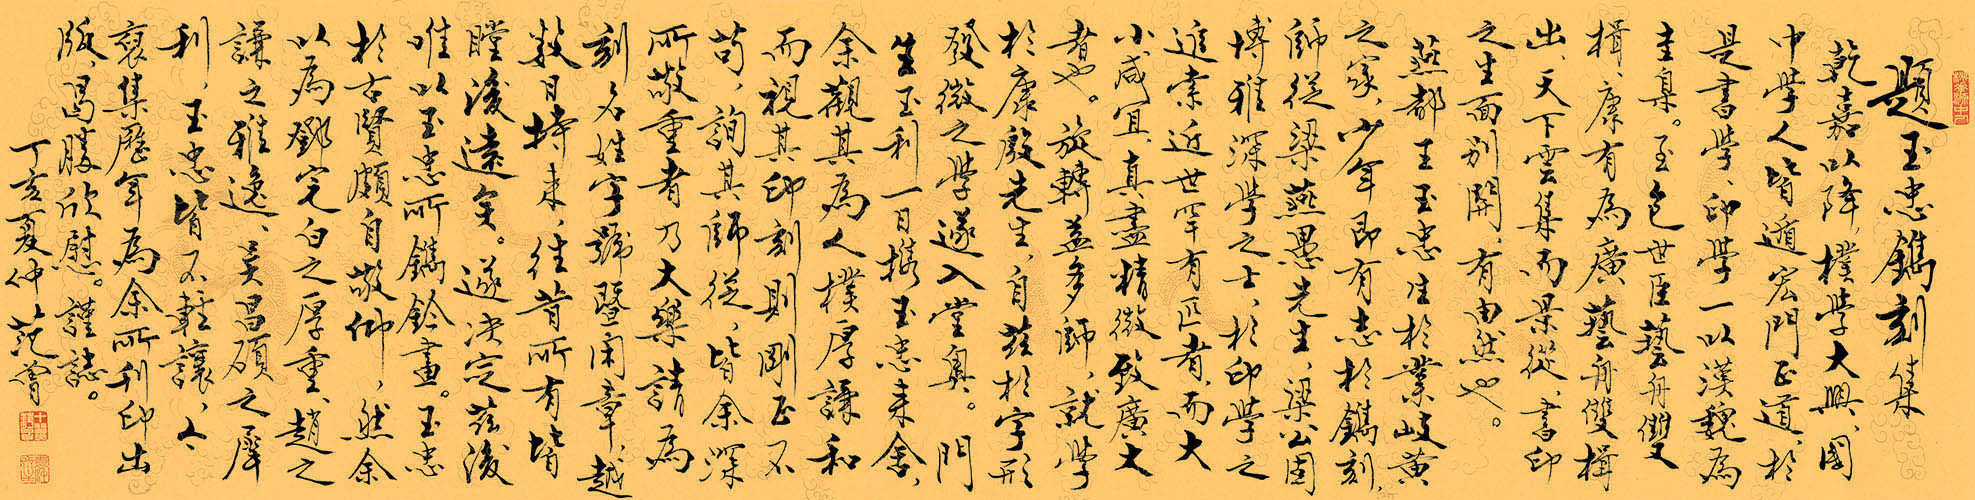 题玉忠镌刻集
乾嘉以降樸学大興、国
中学人皆遁宏門正道、於
是書学、印学一以漢魏為
圭臬。至包世臣藝舟雙
楫、康有為廣藝舟雙楫
出、天下雲集而景從、書印
之生面别開、有由然也。
燕都王玉忠生於業岐黄
之家、少年即有志於鐫刻、
師從梁燕愚先生、梁公固
博雅深学之士、於印学之
追索近世罕有匹者、而大
小咸宜、真盡精微致廣大
者也。旋轉益多師、就学
於康殷先生、自兹於字形
發微之学遂入堂奥。門
生玉利一日携玉忠来舍、
余觀其為人樸厚謙和
而視其印刻則剛正不
苟、詢其師從、皆余深
所敬重者乃大樂請為
刻名姓字號暨闲章、越
数日持来、往昔所有皆
瞠後遠矣。遂决定兹後
唯以玉忠所鐫鈐畫。玉忠
於古賢頗自敬仰、然余
以為鄧完白之厚重、趙之
謙之雅逸、吴昌碩之犀
利、玉忠皆不輕讓、今
裒集歷年為余所刊印出
版、曷勝欣慰。謹誌。
丁亥夏仲 范曾